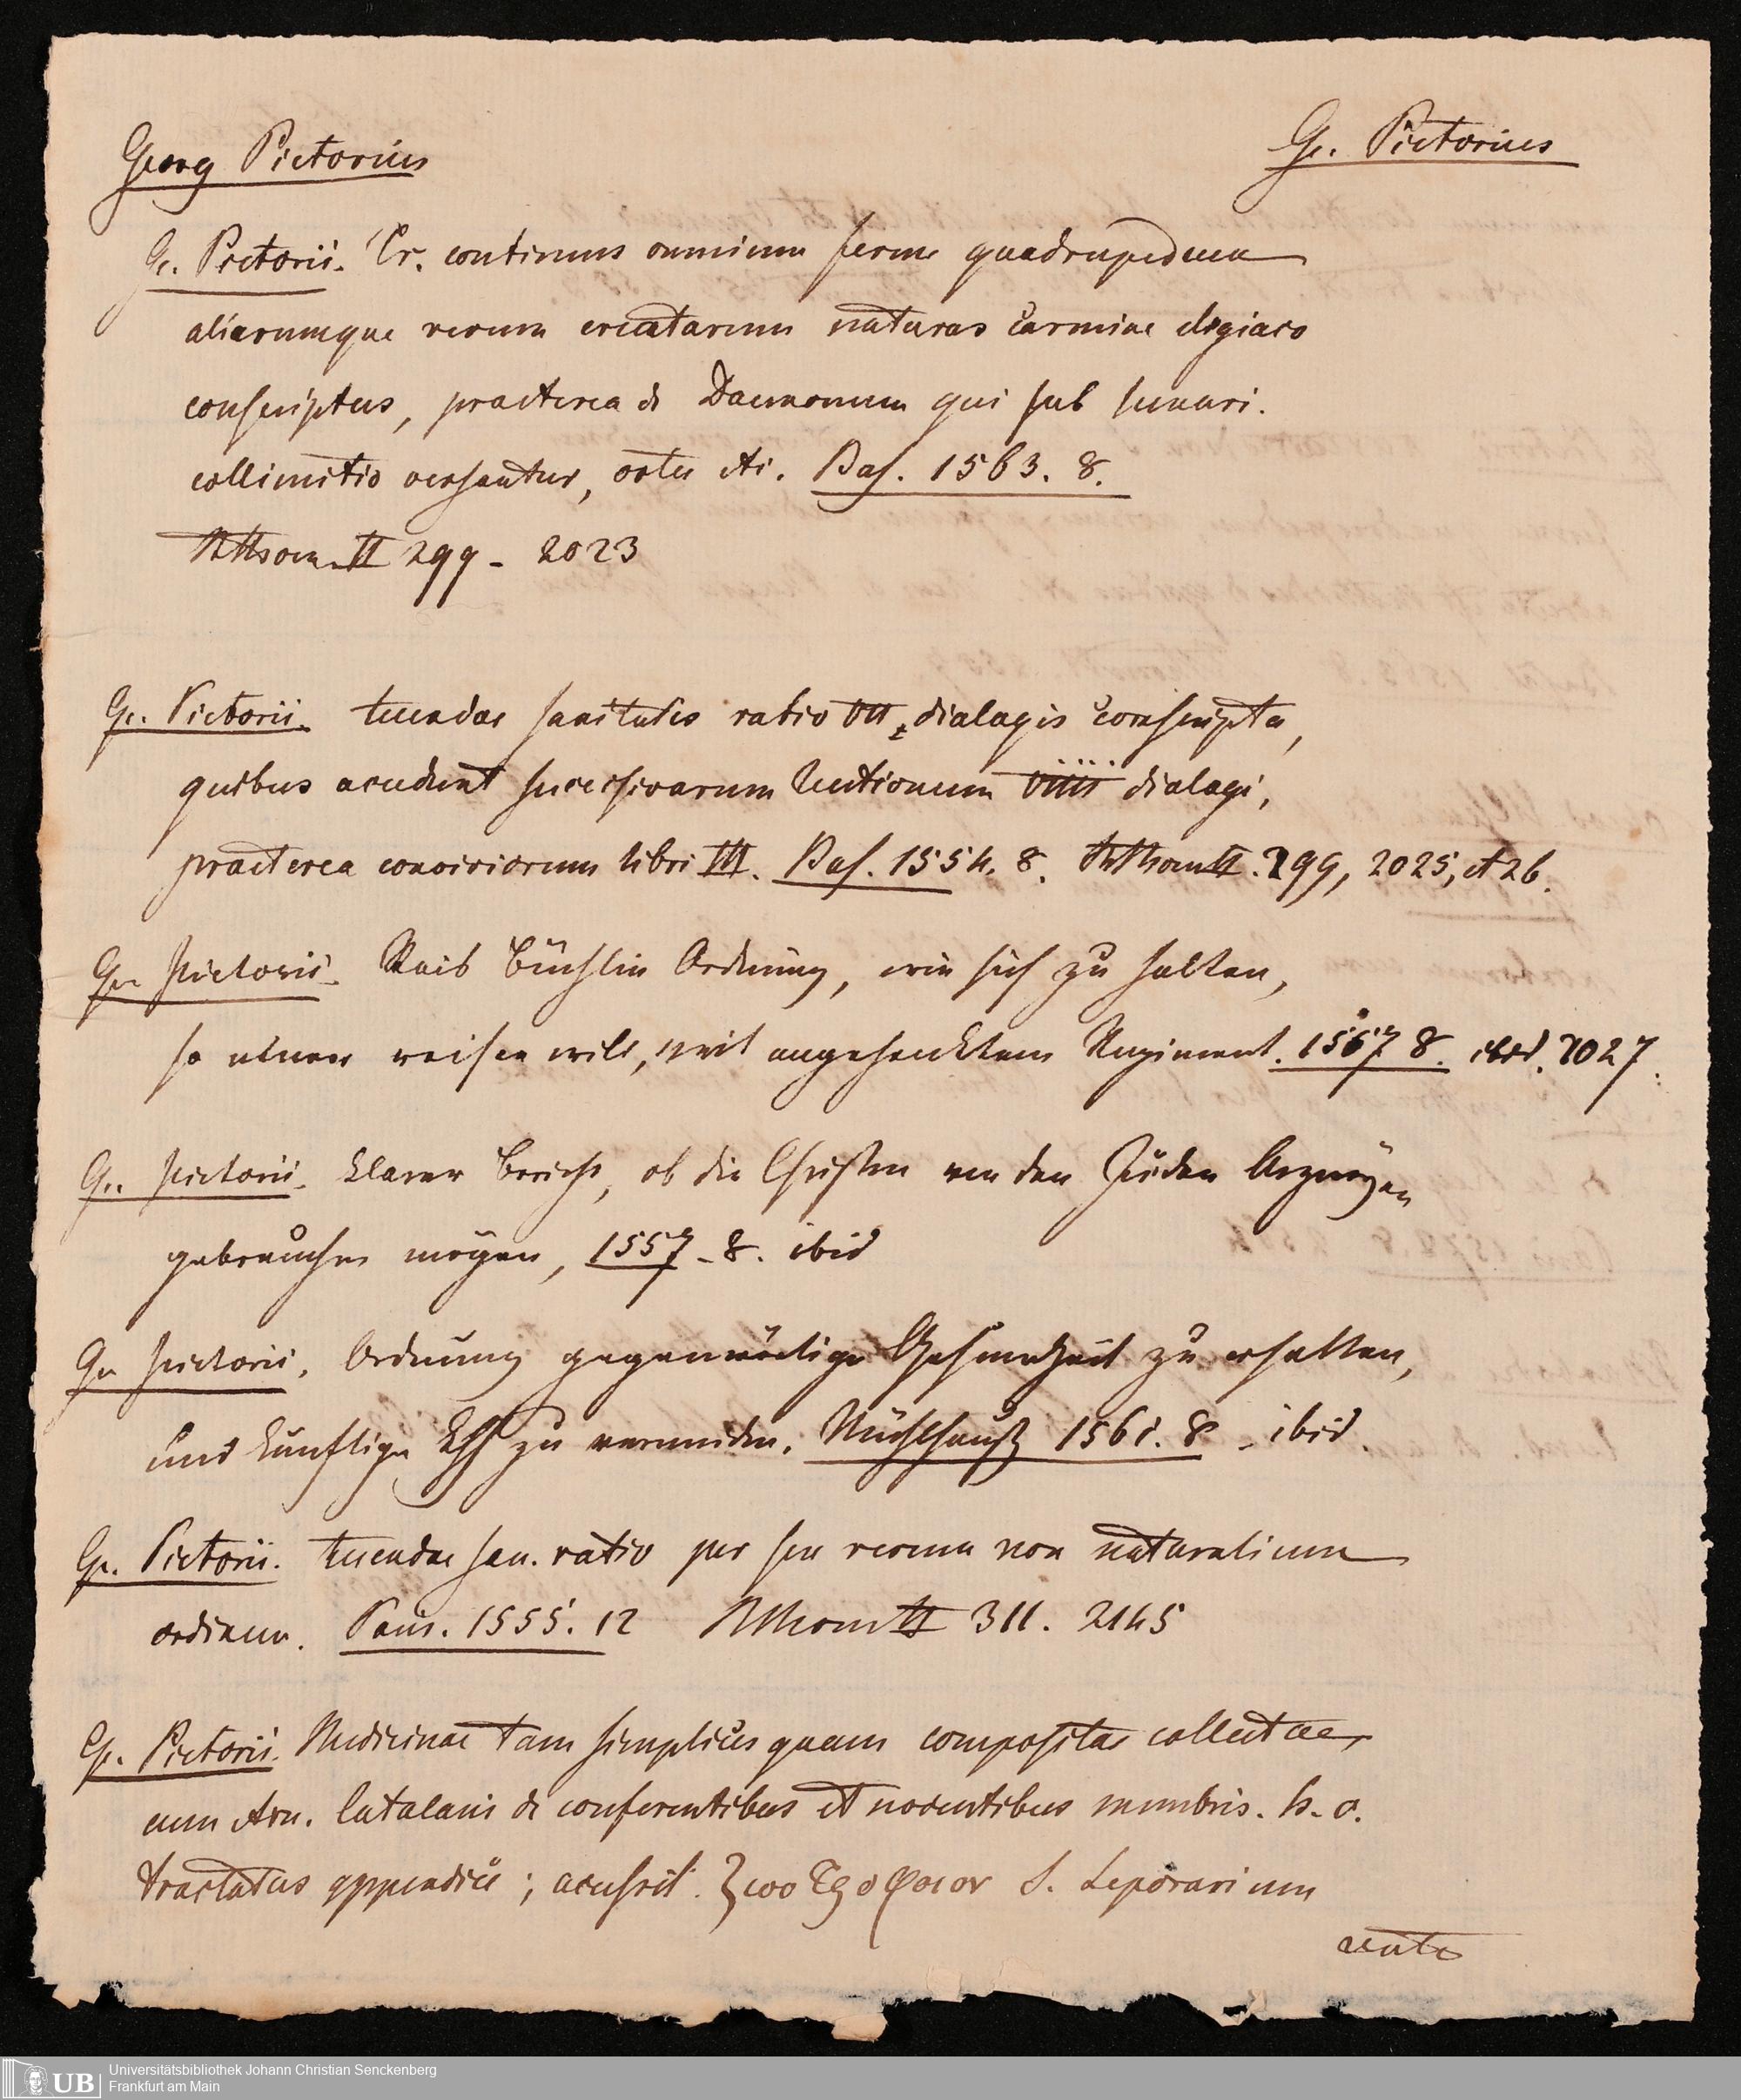 G. Pictorius
Georg Pictorius
G. Pictorii. Lr. continens omnium ferme quadrupedum
aliarumque rerum creatarum naturas carmine elegiaco
conscriptus, praeterea de Daemonum qui sub lunari.
collimitio versantur, ortu etc. Bas. 1563. 8.
II 299 - 2023
G. Pictorii. tuendae sanitatis ratio VII dialogis conscripta,
quibus accedunt succisivarum lectionum dialogi,
praeterea conviviorum libri III. Bas. 1554. 8. II. 299, 2025, et 26.
G. Pictorii. Raib büchlin Ordnung, wie sich zu halten,
so einer reisen will, mit angehencktem Regiment. 1567 8. ibid. 2027.
G. Pictorii. klarer Bericht, ob die Christen von den Juden Arzneyen
gebrauchen mögen, 1557 - 8. ibid
G. Pictorii. Ordnung gegenwärtige Gesundheit zu erhalten,
und kunftige zu vermeiden. Mühlhauß 1561. 8. ibid.
G. Pictorii. tuendae san. ratio per sex rerum non naturalium
ordinem. Paris. 1555. 12 II 311. 2145
G. Pictorii. Medicinae tam simplices quam compositae collectae,
cum Arn. Catalani de conferentibus et nocentibus membris. h. c.
tractatus appendice; accessit. ζωοτροφειον S. Leporarium